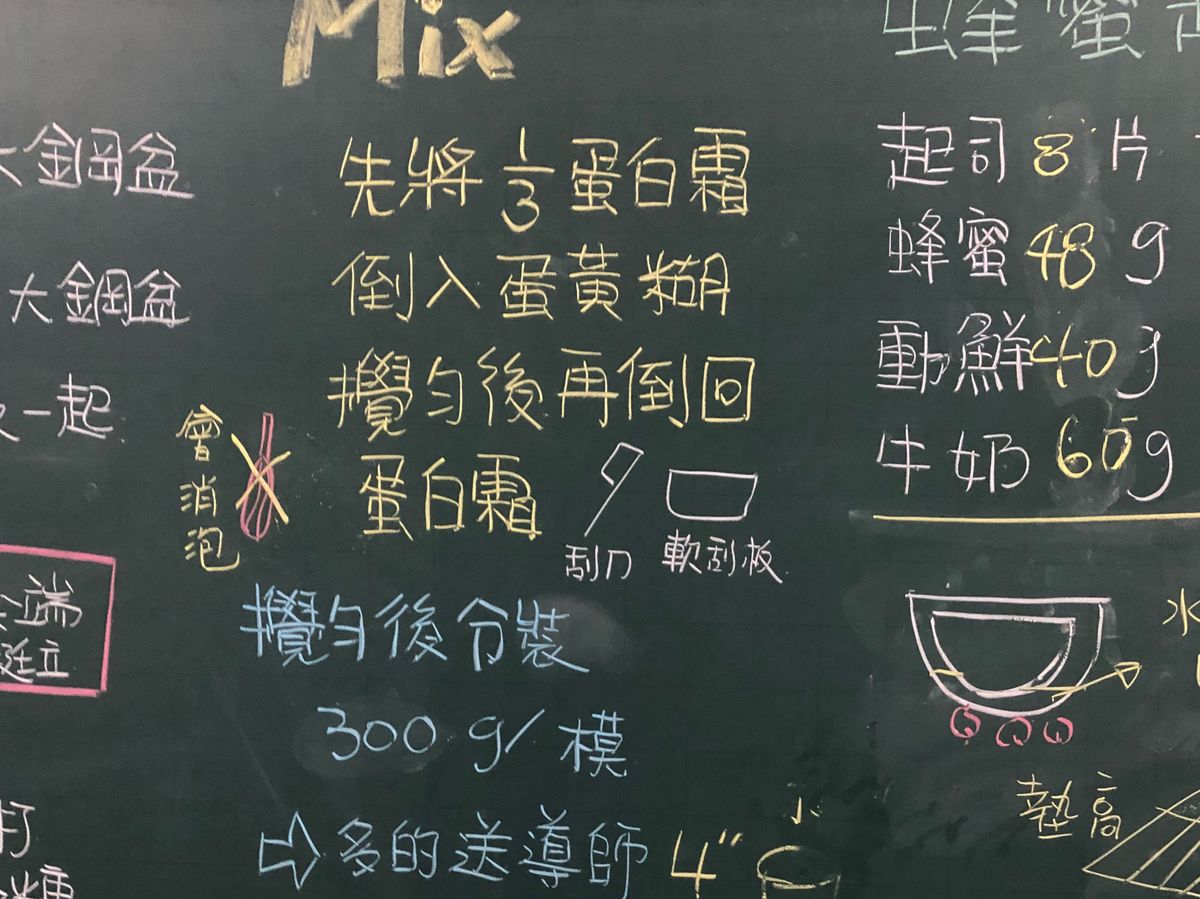 大鋼盆
大鋼盆
一起
端
立
打
糖
Mix
先將 1/3 蛋白霜
倒入蛋黃糊
攪勻後再倒回
蛋白霜
會消泡
刮刀
軟刮板
攪勻後分裝
300 g/模
⇨多的送導師 4"
小
蜂蜜
起司 8 片
蜂蜜 48 g
動鮮 40 g
牛奶 60 g
水
墊高